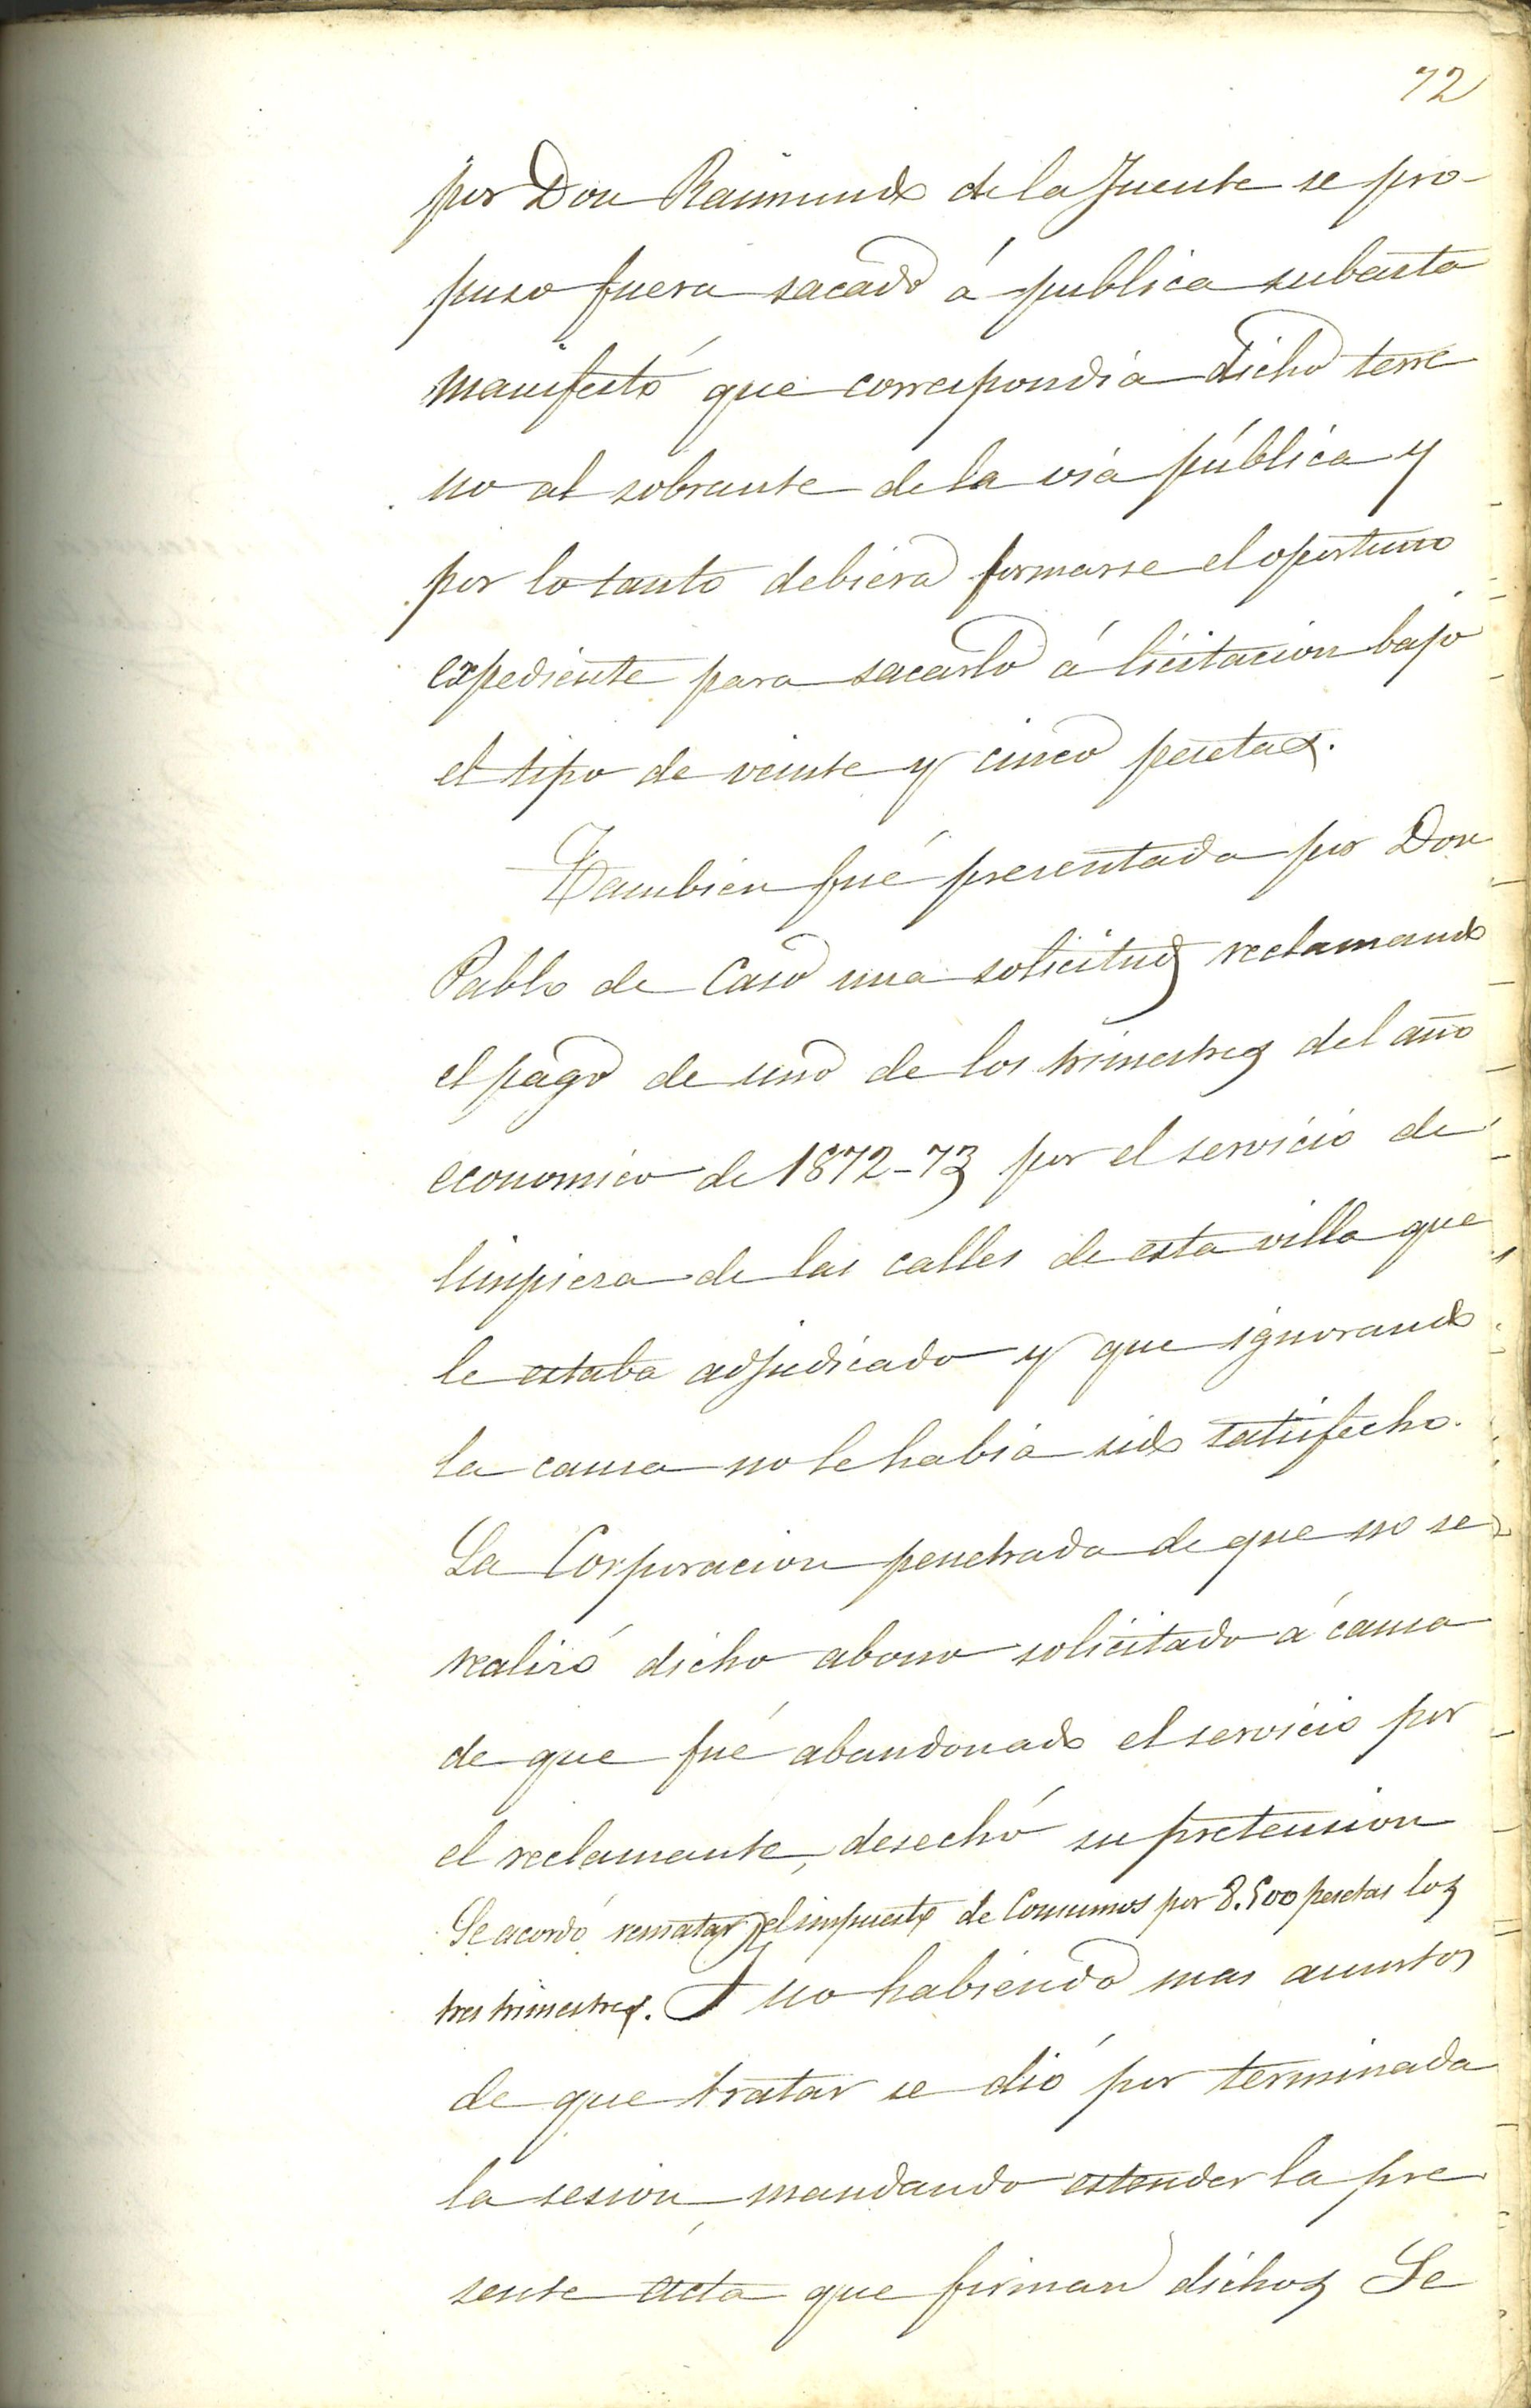 72
por Don Raimundo de la Fuente se pro-
puso fuera sacado á publica subasta
manifestó que correspondia dicho terre
no al sobrante de la via pública y
por lo tanto debiera formarse el oportuno
expediente para sacarlo á licitacion bajo
el tipo de veinte y cinco pesetas.
Tambien fué presentada por Don
Pablo de Caso una solicitud reclamando
el pago de uno de los trimestres del año
economico de 1872-73 por el servicio de
limpieza de las calles de esta villa que
le estaba adjudicado y que ignorando
la causa no le habia sido satisfecho.
La Corporacion penetrada de que no se
realizó dicho abono solicitado á causa
de que fué abandonado el servicio por
el reclamante, desechó su pretension
Se acordó rematar el impuesto de Consumos por 8.500 pesetas los
tres trimestres. Y no habiendo mas asuntos
de que tratar se dió por terminada
la sesion, mandando estender la pre
sente acta que firman dichos Se